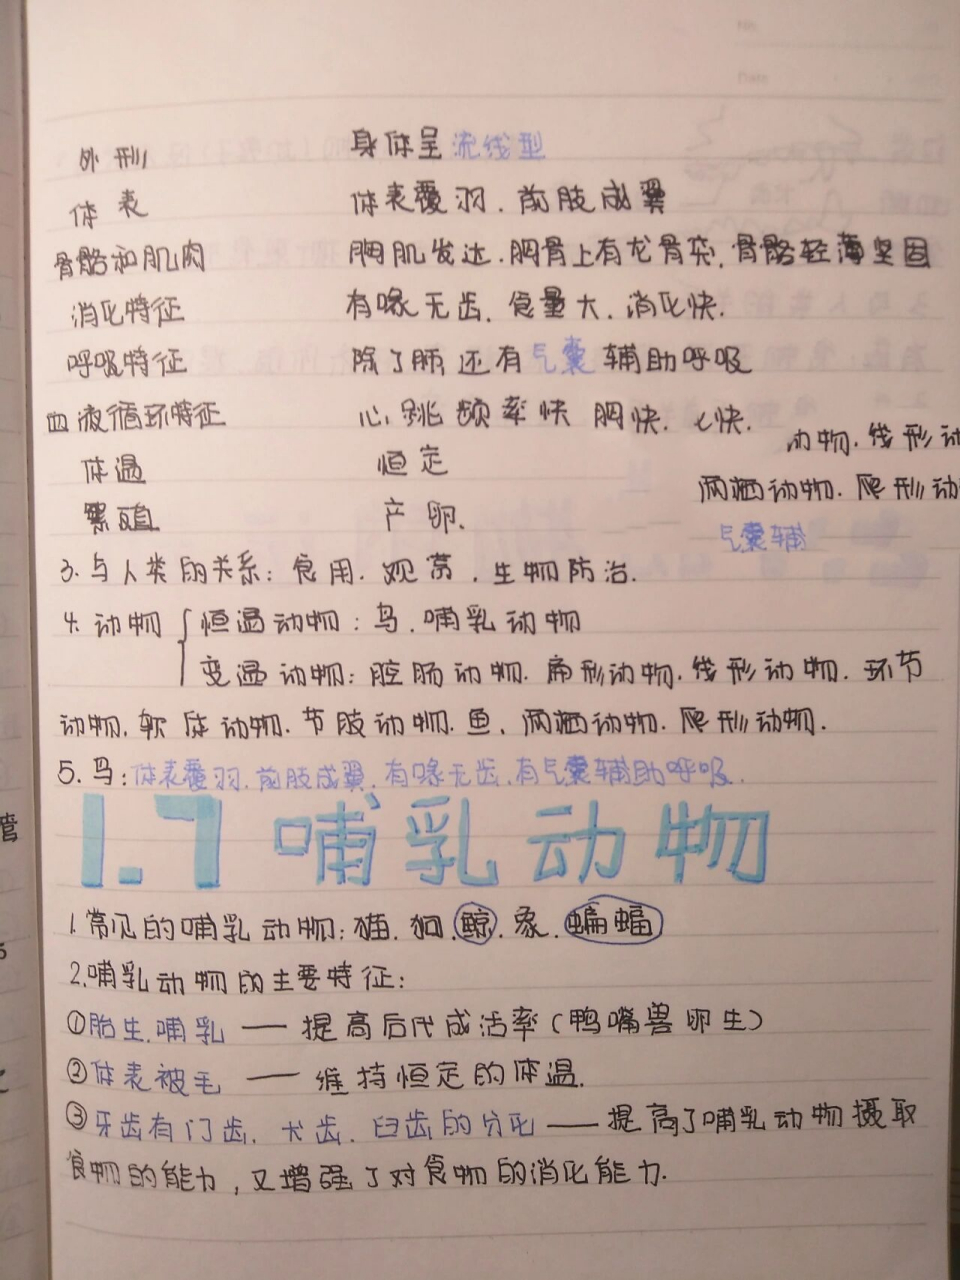 外形 身体呈流线型
体表 体表覆羽.前肢成翼
骨骼和肌肉 胸肌发达.胸骨上有龙骨突,骨骼轻薄坚固
消化特征 有喙无齿.食量大.消化快.
呼吸特征 除了肺还有气囊辅助呼吸
血液循环特征 心跳频率快 胸快.心快.
动物.线形动
体温 恒定
两栖动物.爬形动
繁殖 产卵.
气囊辅
3.与人类的关系:食用.观赏.生物防治.
4.动物 恒温动物:鸟.哺乳动物
变温动物:腔肠动物.扁形动物.线形动物.环节
动物.软体动物.节肢动物.鱼.两栖动物.爬形动物.
5.鸟:体表覆羽.前肢成翼.有喙无齿.有气囊辅助呼吸.
1.7哺乳动物
1.常见的哺乳动物:猫.狗.鲸.象.蝙蝠
2.哺乳动物的主要特征:
①胎生.哺乳——提高后代成活率(鸭嘴兽卵生)
②体表被毛——维持恒定的体温.
③牙齿有门齿.犬齿.臼齿的分化——提高了哺乳动物摄取
食物的能力,又增强了对食物的消化能力.